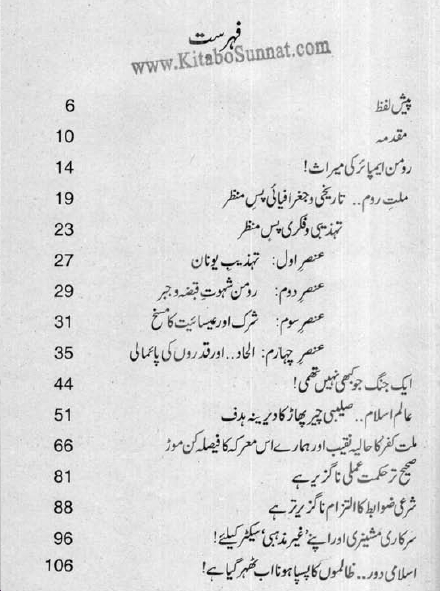 فہرست
www.KitaboSunnat.com
پیش لفظ 6
مقدمہ 10
رومن ایمپائر کی میراث! 14
ملتِ روم.. تاریخی و جغرافیائی پس منظر 19
تہذیبی و فکری پس منظر 23
عنصر اول: تہذیب یونان 27
عنصر دوم: رومن شہوتِ قبضہ و جبر 29
عنصر سوم: شرک اور عیسائیت کا مسخ 31
عنصر چہارم: الحاد.. اور قدروں کی پائمالی 35
ایک جنگ جو کبھی نہیں تھمی! 44
عالم اسلام.. صلیبی چیر پھاڑ کا دیرینہ ہدف 51
ملت کفر کا حالیہ نقیب اور ہمارے اس معرکہ کا فیصلہ کن موڑ 66
صحیح تر حکمت عملی ناگزیر ہے 81
شرعی ضوابط کا التزام ناگزیر تر ہے 88
سرکاری مشینری اور اپنے ’غیر مذہبی‘ سیکٹر کیلئے! 96
اسلامی دور.. ظالموں کا پسپا ہونا اب ٹھہر گیا ہے! 106